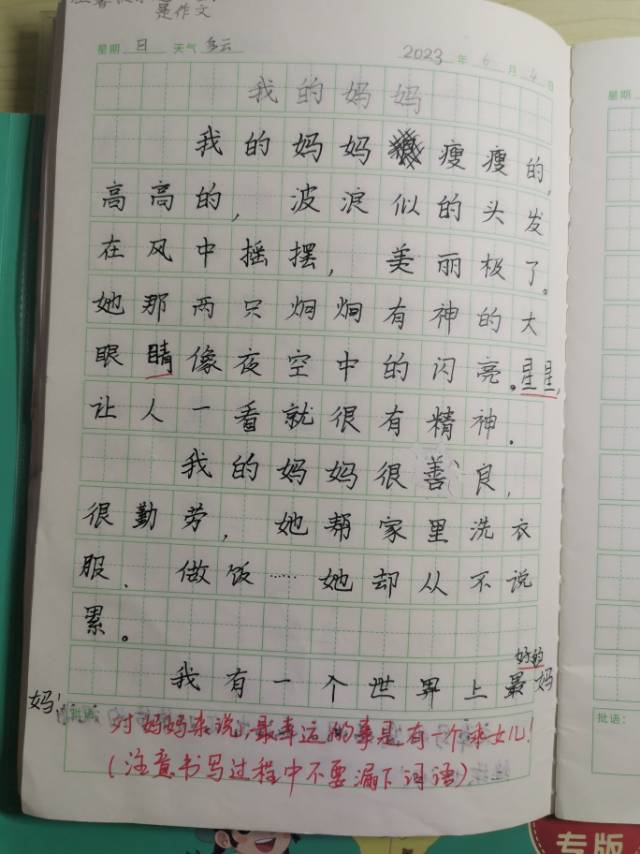 是作文
星期 日 天气 多云 2023 年 6 月 4 日
我的妈妈
我的妈妈瘦瘦的,
高高的, 波浪似的头发
在风中摇摆, 美丽极了。
她那两只炯炯有神的大
眼睛像夜空中的闪亮。星星,
让人一看就很有精神.
我的妈妈很善良,
很勤劳, 她帮家里洗衣
服、做饭……她却从不说
累。
好的
我有一个世界上最妈
妈!
对妈妈来说,最幸运的事是有一个乖女儿!
(注意书写过程中不要漏下词语)
星期
批语:
专版